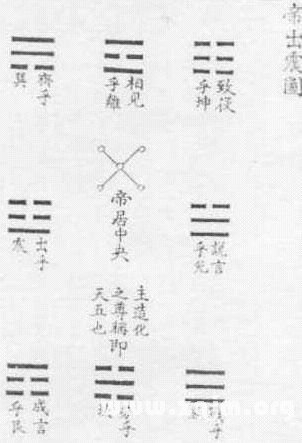 帝出震圖
致役
乎坤
相見
乎離
齊乎
巽
說言
乎兌
帝居中央
主造化
之尊稱即
天五也
出乎
震
乎
乎
成言
乎艮